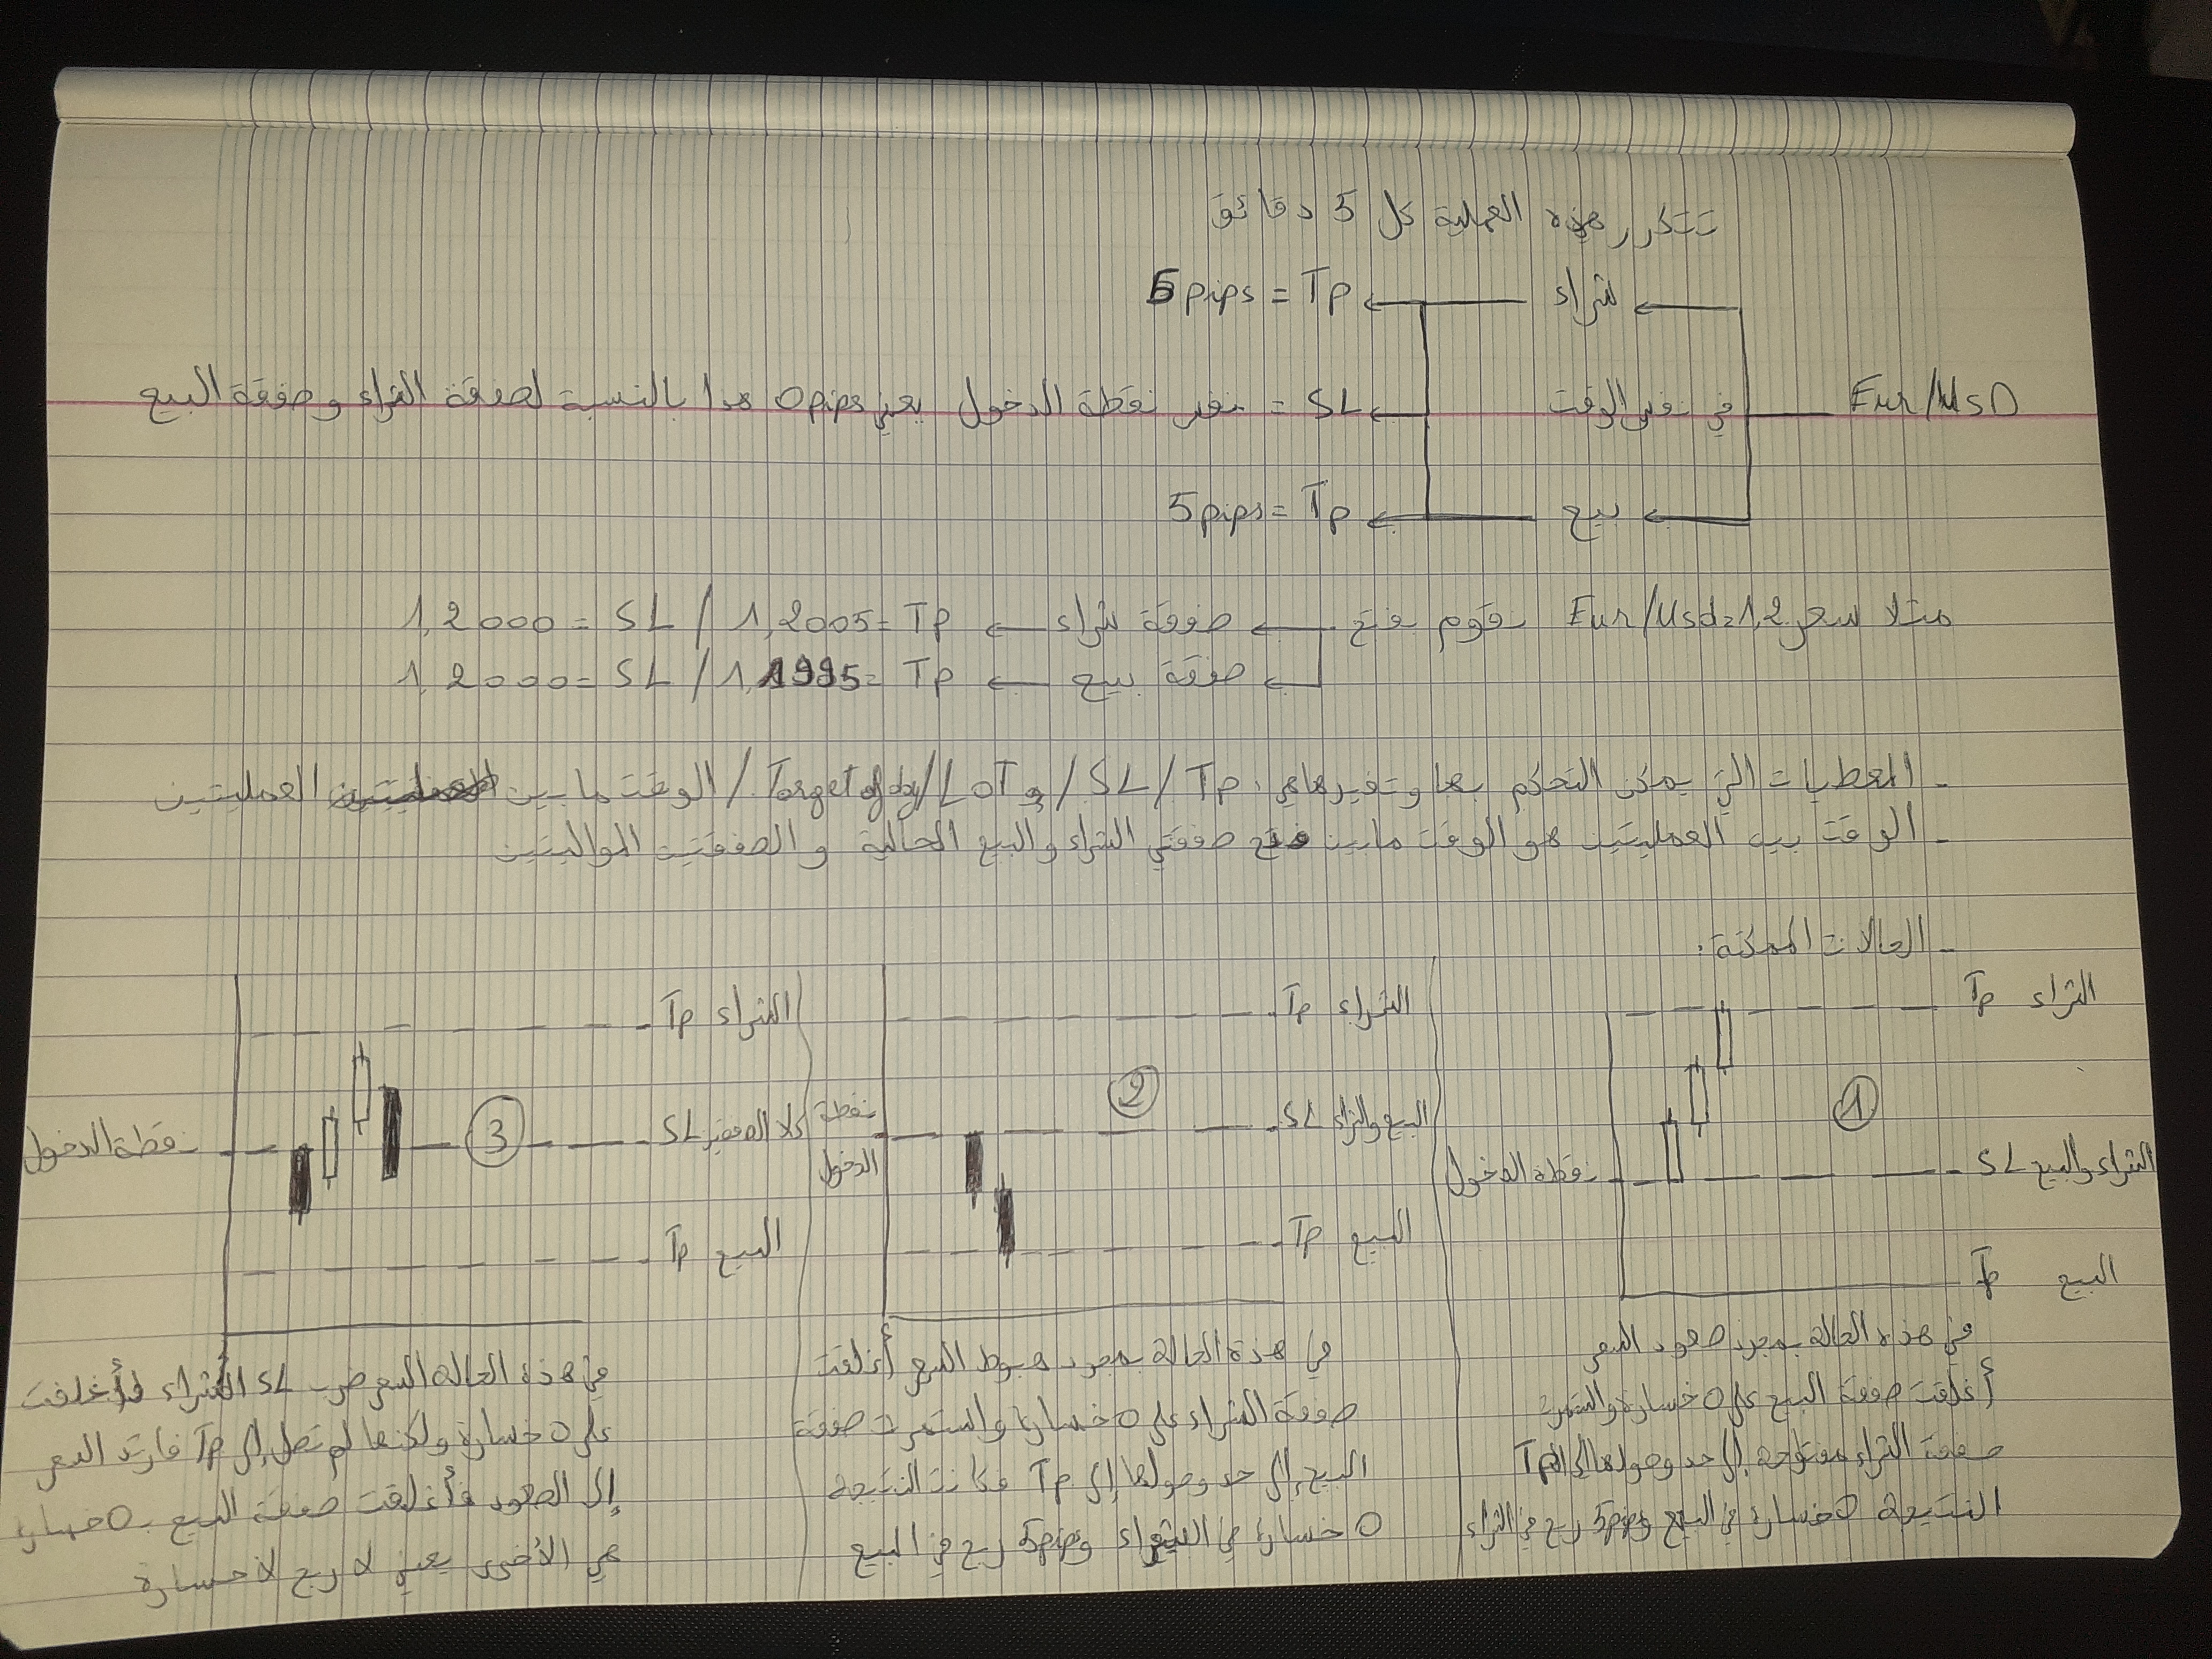 تتكرر هذه العملية كل 5 دقائق
شراء ← Tp = 5 pips
Eur/UsD في نفس الوقت ← SL = نفس نقطة الدخول يعني 0 pips هدا بالنسبة لصفقة الشراء وصفقة البيع
بيع ← Tp = 5 pips
مثلا سعر Eur/Usd = 1,2 نقوم بفتح ← صفقة شراء ← Tp = 1,2005 / SL = 1,2000
صفقة بيع ← Tp = 1,1995 / SL = 1,2000
- المعطيات التي يمكن التحكم بها وتغييرها هي: Tp / SL / و LoT / Target of day / الوقت ما بين العمليتين
- الوقت بين العمليتين هو الوقت مابين فتح صفقتي الشراء والبيع الحالية و الصفقتين المواليتين
- الحالات الممكنة:
الشراء Tp
1
الشراء والبيع SL
نقطة الدخول
البيع Tp
في هذه الحالة بمجرد صعود السعر
أغلقت صفقة البيع على 0 خسارة واستمرت
صفقة الشراء مفتوحة إلى حد وصولها إلى Tp
النتيجة 0 خسارة في البيع و 5pips ربح في الشراء
الشراء Tp
2
البيع والشراء SL
نقطة الدخول
البيع Tp
في هذه الحالة بمجرد هبوط السعر أغلقت
صفقة الشراء على 0 خسارة واستمرت صفقة
البيع إلى حد وصولها إلى Tp فكانت النتيجة
0 خسارة في الشراء و 5pips ربح في البيع
الشراء Tp
3
كلا الصفقتين SL
نقطة الدخول
البيع Tp
في هذه الحالة السعر ضرب SL الشراء وأغلقت
على 0 خسارة ولكنها لم تصل إلى Tp فارتد السعر
إلى الصعود فأغلقت صفقة البيع بـ 0 خسارة
هي الأخرى يعني لا ربح لا خسارة